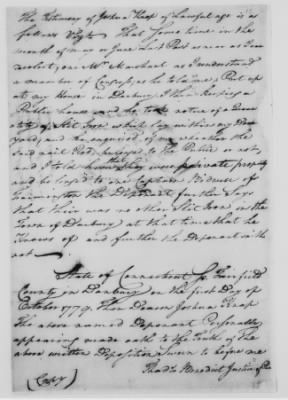 The Testimony of Joshua Knap of Lawful age is as
follows Viz That some time in the
month of may or June Last Past as near as I can
recolect, one Mr Marchant as I understood
a member of Congress, as he told me, Put up
at my House in Danbury I then keeping a
Publick house and he took notice of a Quan
tity of Slit Iron which lay within my Door
yard, and he enquired of me whether the
said nail Rods belonged to the Publick or not,
and I told him that they were private property
and belonged to one Captain
the Deponent further Says
that their was no other Slit Iron in the
Town of Danbury at that time that he
Knows of and further the Deponent saith
not
State of Connecticut Ss Fairfield
County in Danbury on the first Day of
October 1779. Then Deacon Joshua Knap
The above named Deponent Personally
appearing made oath to the Truth of the
above written Deposition Sworn to before me
Thads Benedict Justice of Peace
(Copy)